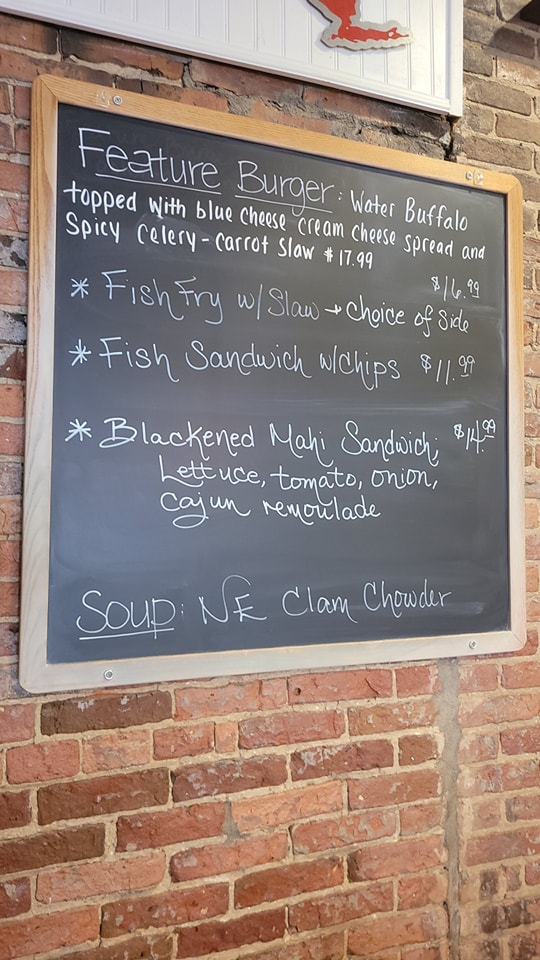 Feature Burger: Water Buffalo
topped with blue cheese cream cheese spread and
Spicy celery-carrot slaw $17.99
* Fish Fry w/Slaw → Choice of Side $16.99
* Fish Sandwich w/Chips $11.99
* Blackened Mahi Sandwich; $14.99
Lettuce, tomato, onion,
cajun remoulade
Soup: NE Clam Chowder